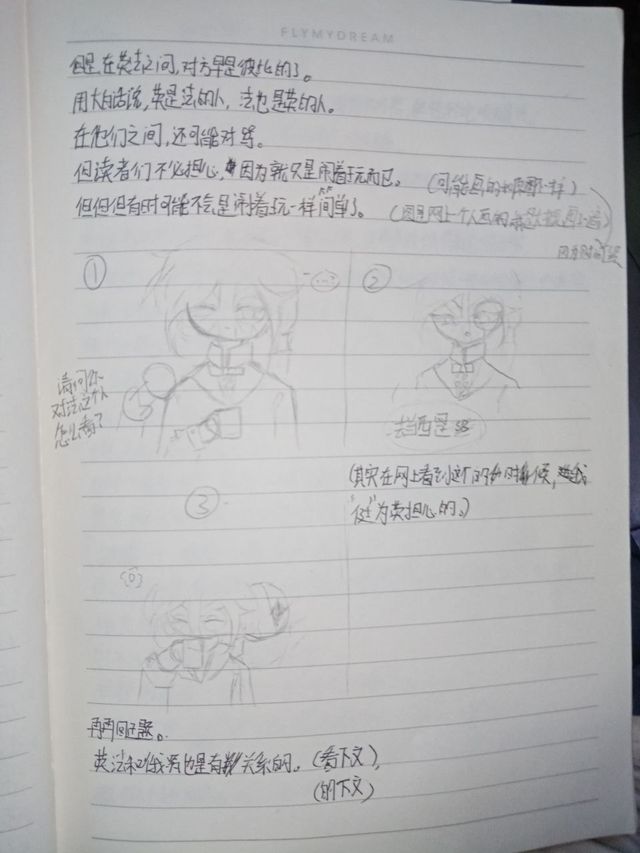 FLYMYDREAM
但是在英法之间,对方早是彼此的了。
用大白话说,英是法的人,法也是英的人。
在他们之间,还可能对练。
但读者们不必担心,因为就只是闹着玩而已。(可能画的
但但但有时可能不会是闹着玩一样简单了。(图是网上个人画的
因为
①
②
请问你
对法这个人
怎么看?
(其实在网上看到这个的时候,
挺为英担心的。)
③
再再回正题。
英法和俄美也是有关系的。(看下文),
(的下文)